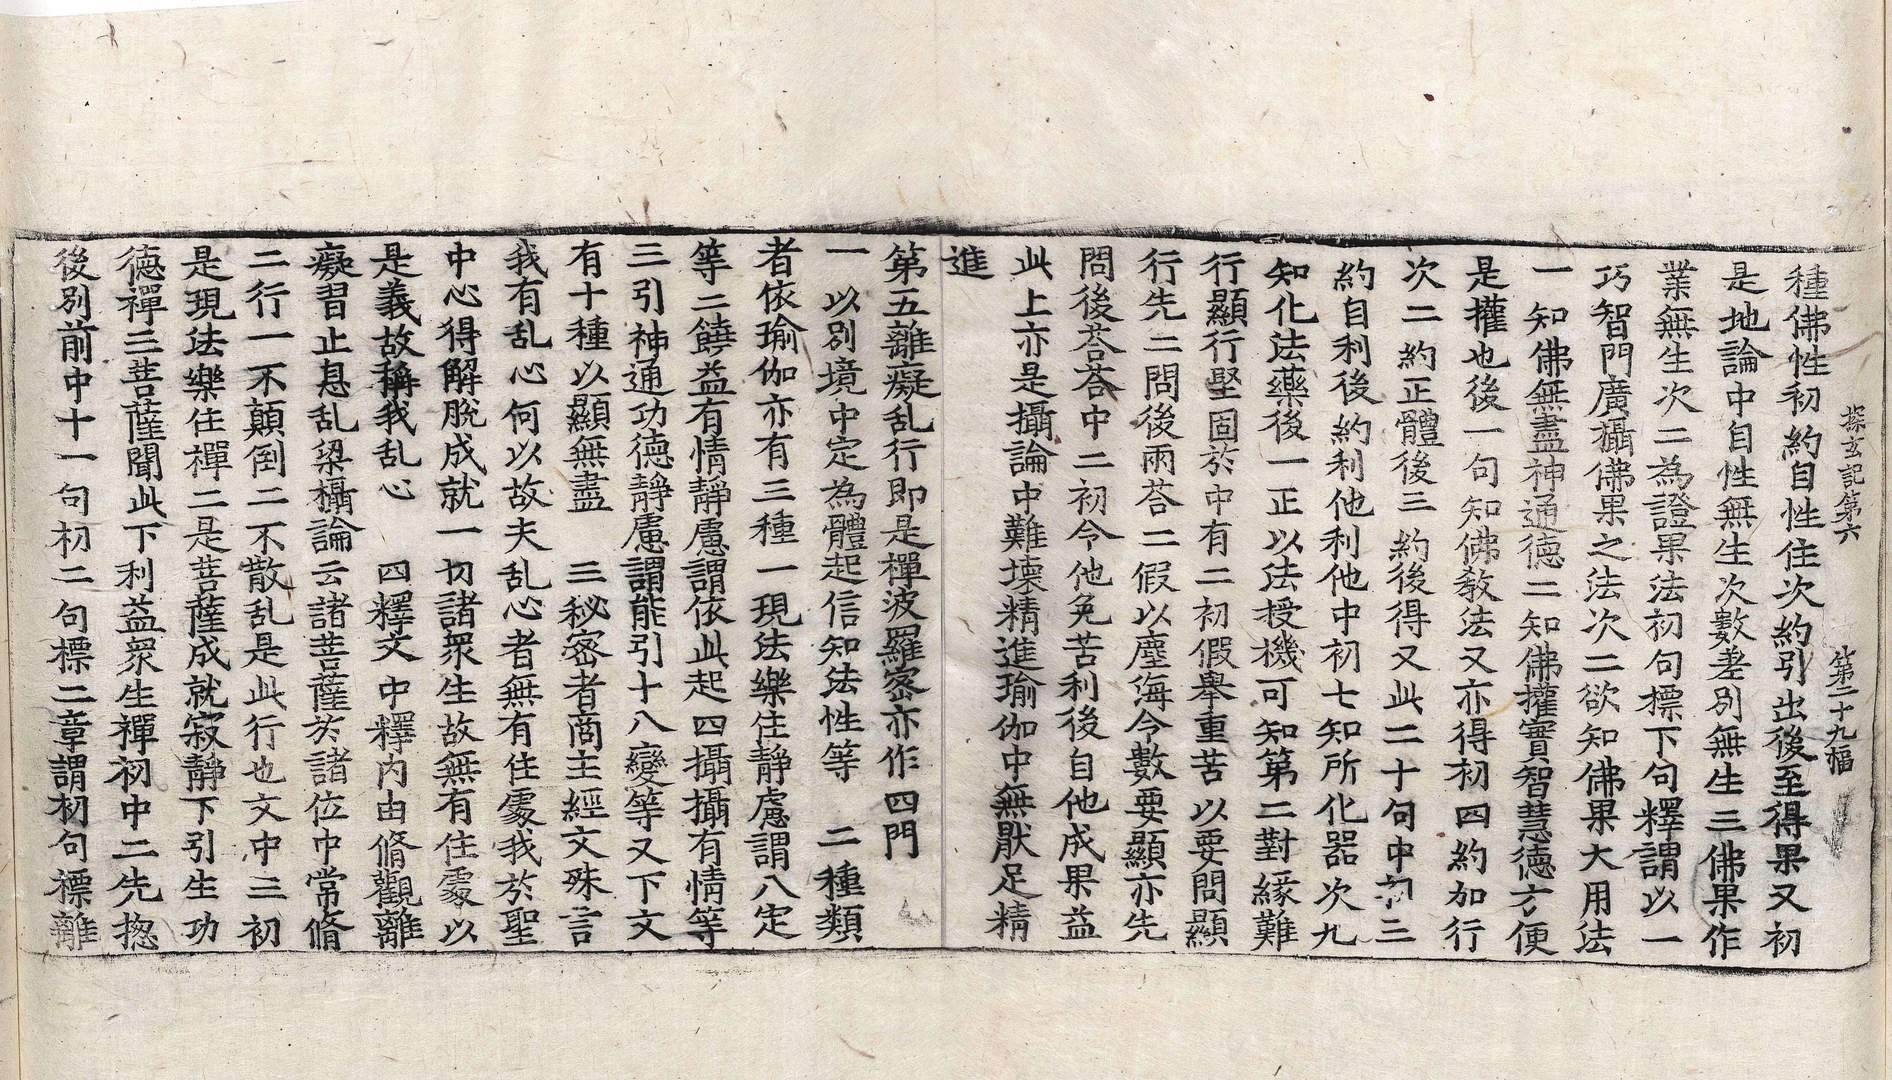 探玄記第六　第二十九幅
種佛性初約自性住次約引出後至得果又初
是地論中自性無生次數差別無生三佛果作
業無生次二為證果法初句標下句釋謂以一
巧智門廣攝佛果之法次二欲知佛果大用法
一知佛無盡神通德二知佛權實智慧德方便
是權也後一句知佛教法又亦得初四約加行
次二約正體後三約後得又此二十句中初三
約自利後約利他利他中初七知所化器次九
知化法藥後一正以法授機可知第二對緣難
行顯行堅固於中有二初假舉重苦以要問顯
行先二問後兩荅二假以塵海令數要顯亦先
問後荅荅中二初令他免苦利後自他成果益
此上亦是攝論中難壞精進瑜伽中無猒足精
進
第五離癡乱行即是禪波羅密亦作四門
一以別境中定為體起信知法性等　二種類
者依瑜伽亦有三種一現法樂住靜慮謂八定
等二饒益有情靜慮謂依此起四攝攝有情等
三引神通功德靜慮謂能引十八變等又下文
有十種以顯無盡　三秘密者商主經文殊言
我有乱心何以故夫乱心者無有住處我於聖
中心得解脫成就一切諸衆生故無有住處以
是義故稱我乱心　四釋文中釋內由脩觀離
癡習止息乱梁攝論云諸菩薩於諸位中常脩
二行一不顛倒二不散乱是此行也文中三初
是現法樂住禪二是菩薩成就寂靜下引生功
德禪三菩薩聞此下利益衆生禪初中二先揔
後別前中十一句初二句標二章謂初句標離